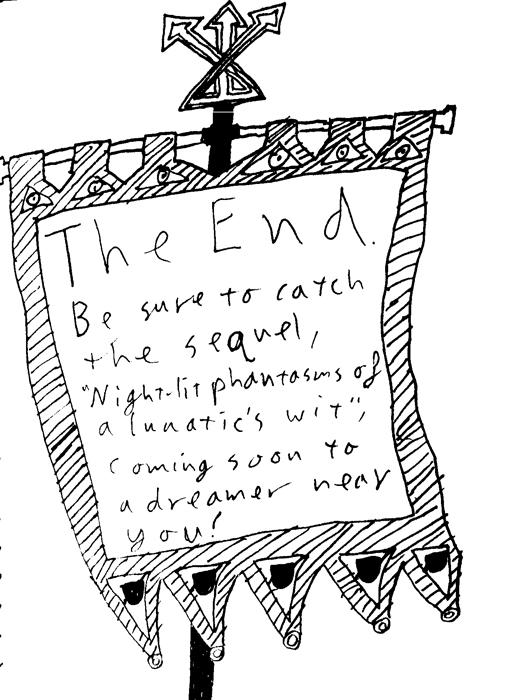 The End.
Be sure to catch
the sequel,
"Night-lit phantasms of
a lunatic's wit",
coming soon to
a dreamer near
you!